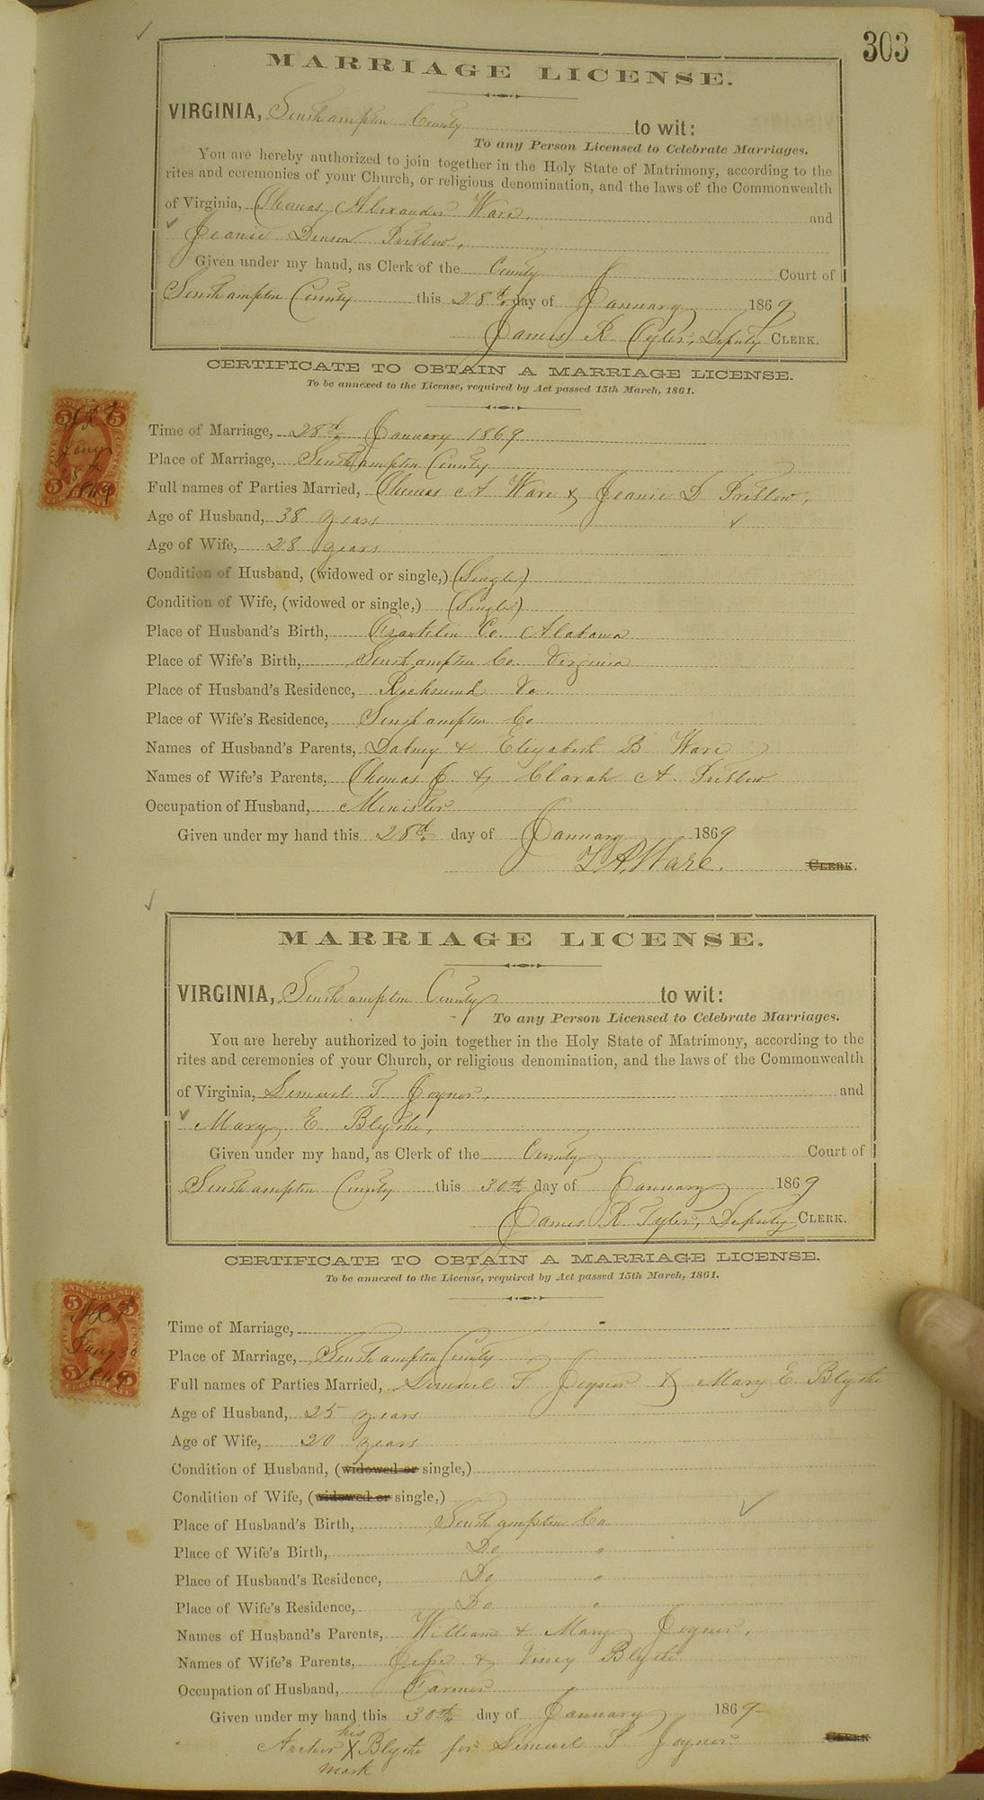 303
MARRIAGE LICENSE.
VIRGINIA, Southampton County to wit:
To any Person Licensed to Celebrate Marriages.
You are hereby authorized to join together in the Holy State of Matrimony, according to the
rites and ceremonies of your Church, or religious denomination, and the laws of the Commonwealth
of Virginia, Thomas Alexander Ware, and
Jeanie Denson Pretlow,
Given under my hand, as Clerk of the County Court of
Southampton County this 28th day of January 1869
James R Tyler, Deputy CLERK.
CERTIFICATE TO OBTAIN A MARRIAGE LICENSE.
To be annexed to the License, required by Act passed 15th March, 1861.
5 5
Jany
28th
1869
Time of Marriage, 28th January 1869
Place of Marriage, Southampton County
Full names of Parties Married, Thomas A Ware & Jeanie D Pretlow.
Age of Husband, 38 years
Age of Wife, 28 years
Condition of Husband, (widowed or single,) (Single)
Condition of Wife, (widowed or single,) (Single)
Place of Husband's Birth, Franklin Co. Alabama
Place of Wife's Birth, Southampton Co. Virginia
Place of Husband's Residence, Richmond Va.
Place of Wife's Residence, Southampton Co
Names of Husband's Parents, Dabney & Elizabeth B Ware
Names of Wife's Parents, Thomas J. & Clarah A. Pretlow
Occupation of Husband, Minister
Given under my hand this 28th day of January 1869
T. A. Ware. CLERK.
MARRIAGE LICENSE.
VIRGINIA, Southampton County to wit:
To any Person Licensed to Celebrate Marriages.
You are hereby authorized to join together in the Holy State of Matrimony, according to the
rites and ceremonies of your Church, or religious denomination, and the laws of the Commonwealth
of Virginia, Lemuel T Joyner, and
Mary E. Blythe,
Given under my hand, as Clerk of the County Court of
Southampton County this 30th day of January 1869
James R Tyler, Deputy CLERK.
CERTIFICATE TO OBTAIN A MARRIAGE LICENSE.
To be annexed to the License, required by Act passed 15th March, 1861.
5 5
Jany 30
1869
Time of Marriage,
Place of Marriage, Southampton County
Full names of Parties Married, Lemuel T Joyner & Mary E. Blythe
Age of Husband, 25 years
Age of Wife, 20 years
Condition of Husband, (widowed or single,)
Condition of Wife, (widowed or single,)
Place of Husband's Birth, Southampton Co
Place of Wife's Birth, Do "
Place of Husband's Residence, Do "
Place of Wife's Residence, Do "
Names of Husband's Parents, William & Mary Joyner.
Names of Wife's Parents, Jesse & Viney Blythe
Occupation of Husband, Farmer
Given under my hand this 30th day of January 1869
his
Archer X Blythe for Lemuel T Joyner CLERK
mark